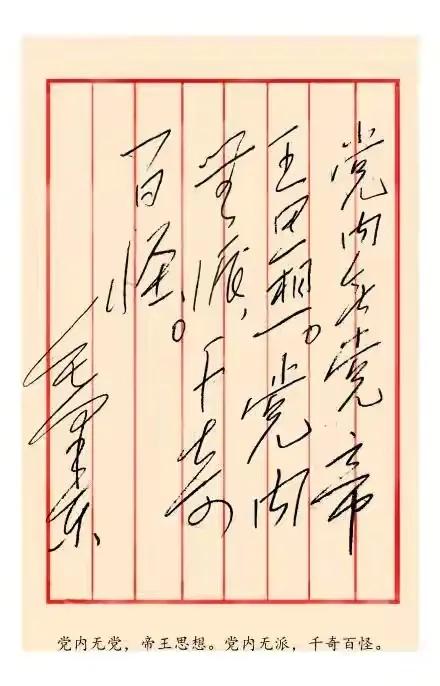 党内无党帝
王思想。党内
無派，千奇
百怪。
毛泽东
党内无党，帝王思想。党内无派，千奇百怪。